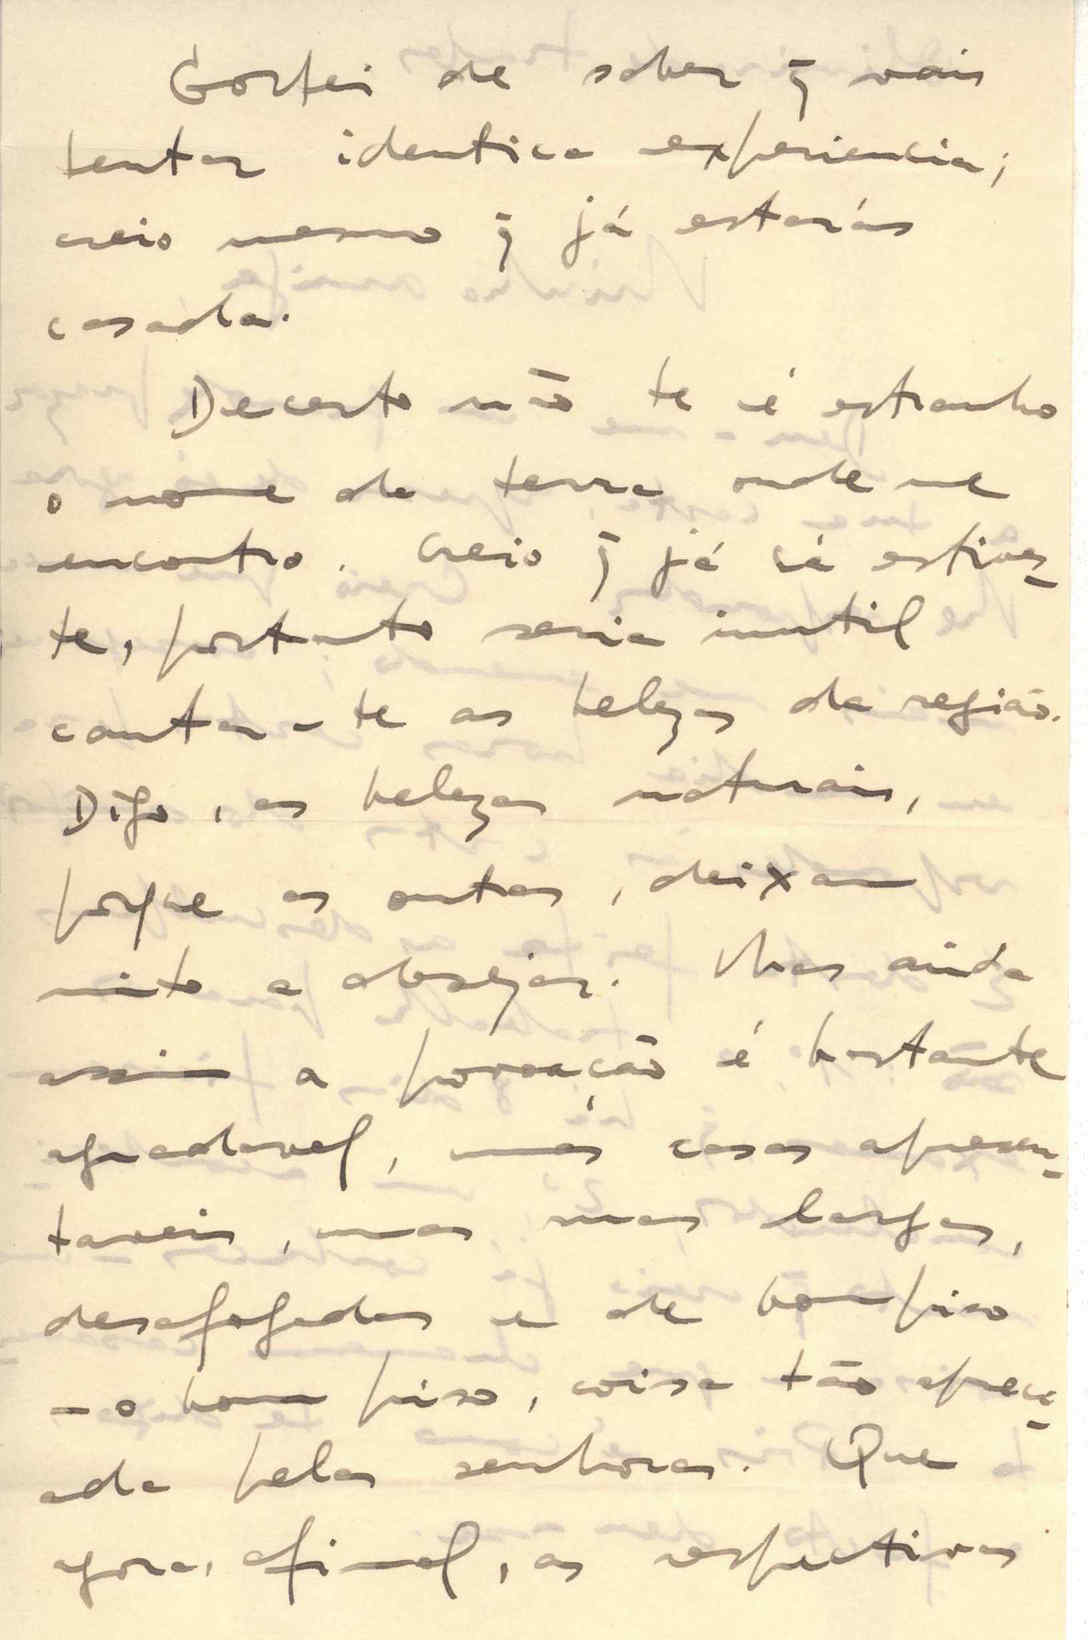 Gostei de saber q̃ vais
tentar identica experiencia;
creio mesmo q̃ já estarás
casada.
Decerto não te é estranho
o nome da terra onde me
encontro. Creio q̃ já cá estives-
te, portanto seria inutil
cantar-te as belezas da região.
Digo, as belezas naturais,
porque as outras, deixam
muito a desejar. Mas ainda
assim a povoação é bastante
agradavel, umas casas apresen-
taveis, umas ruas largas,
desafogadas e de bom piso
- o bom piso, coisa tão apreci-
ada pelas senhoras. Que
agora, afinal, as respectivas